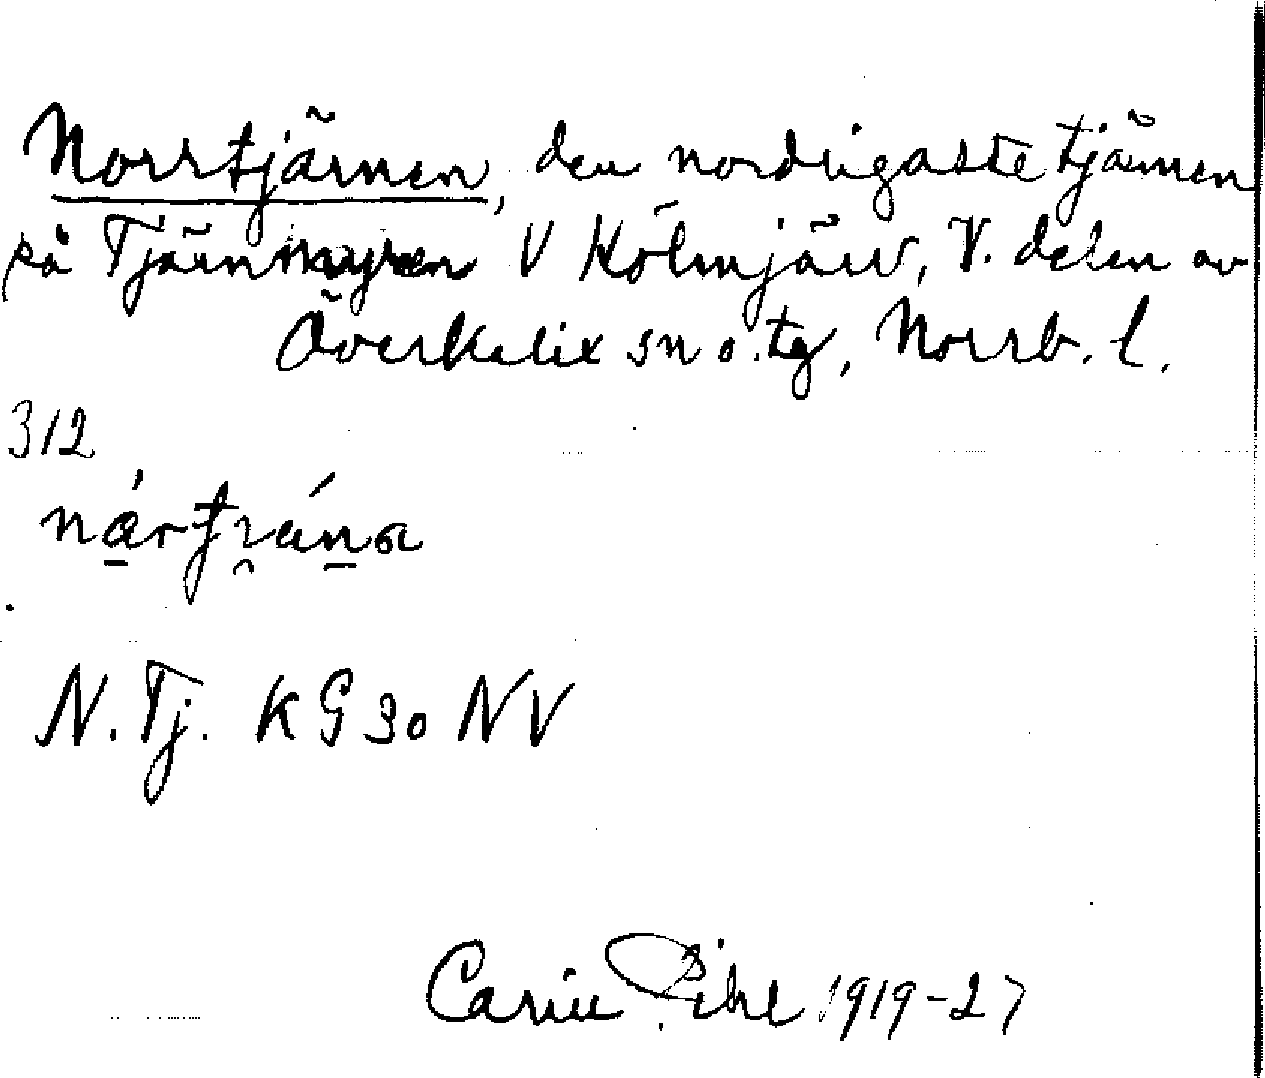 Norrtjärnen, den nordligaste tjärnen
på Tjärnmyren V Hölmjärv, V. delen av
Överkalix sn o. tg, Norrb. l.
312
N. Tj. KG 30 NV
Carin Pihl 1919-27